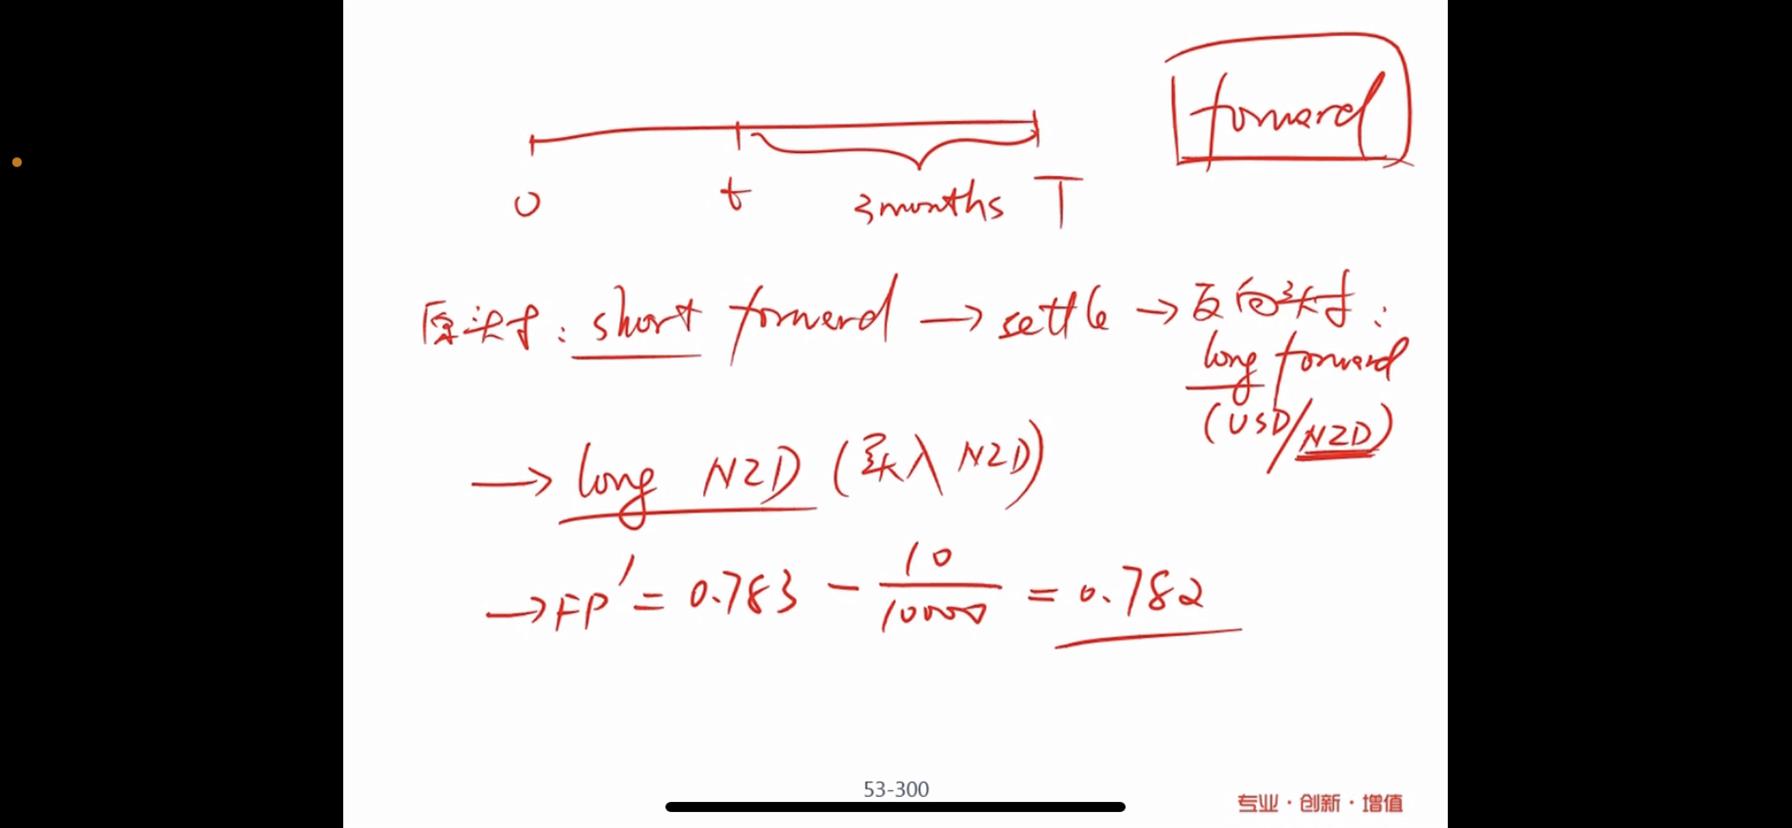 forward
0 t 3months T
原头寸: short forward → settle → 反向头寸:
long forward
(USD/NZD)
→ long NZD (买入 NZD)
→ FP' = 0.783 - 10/10000 = 0.782
53-300
专业·创新·增值